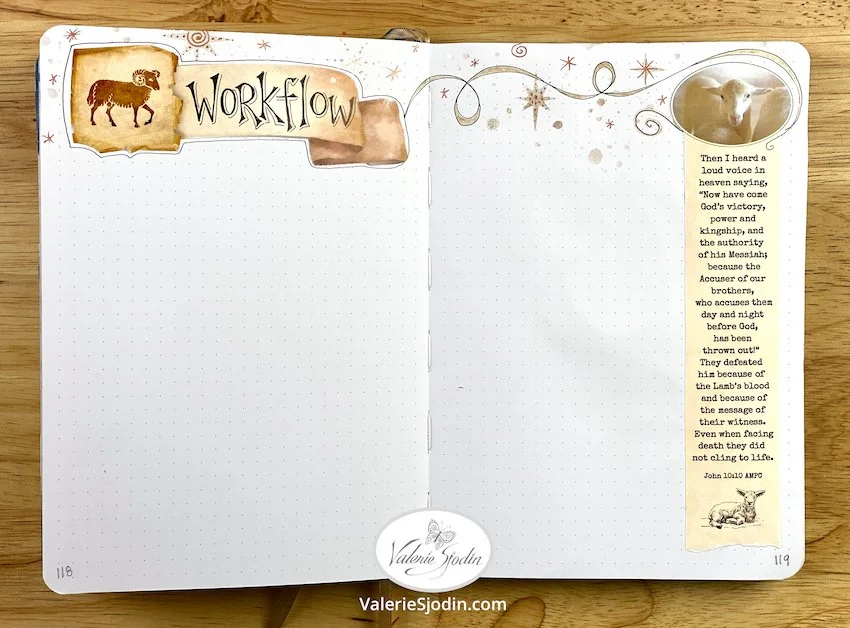 Workflow
Then I heard a
loud voice in
heaven saying,
"Now have come
God's victory,
power and
kingship, and
the authority
of his Messiah;
because the
Accuser of our
brothers,
who accuses them
day and night
before God,
has been
thrown out!"
They defeated
him because of
the Lamb's blood
and because of
the message of
their witness.
Even when facing
death they did
not cling to life.
John 10:10 AMPC
118
119
Valerie Sjodin
ValerieSjodin.com